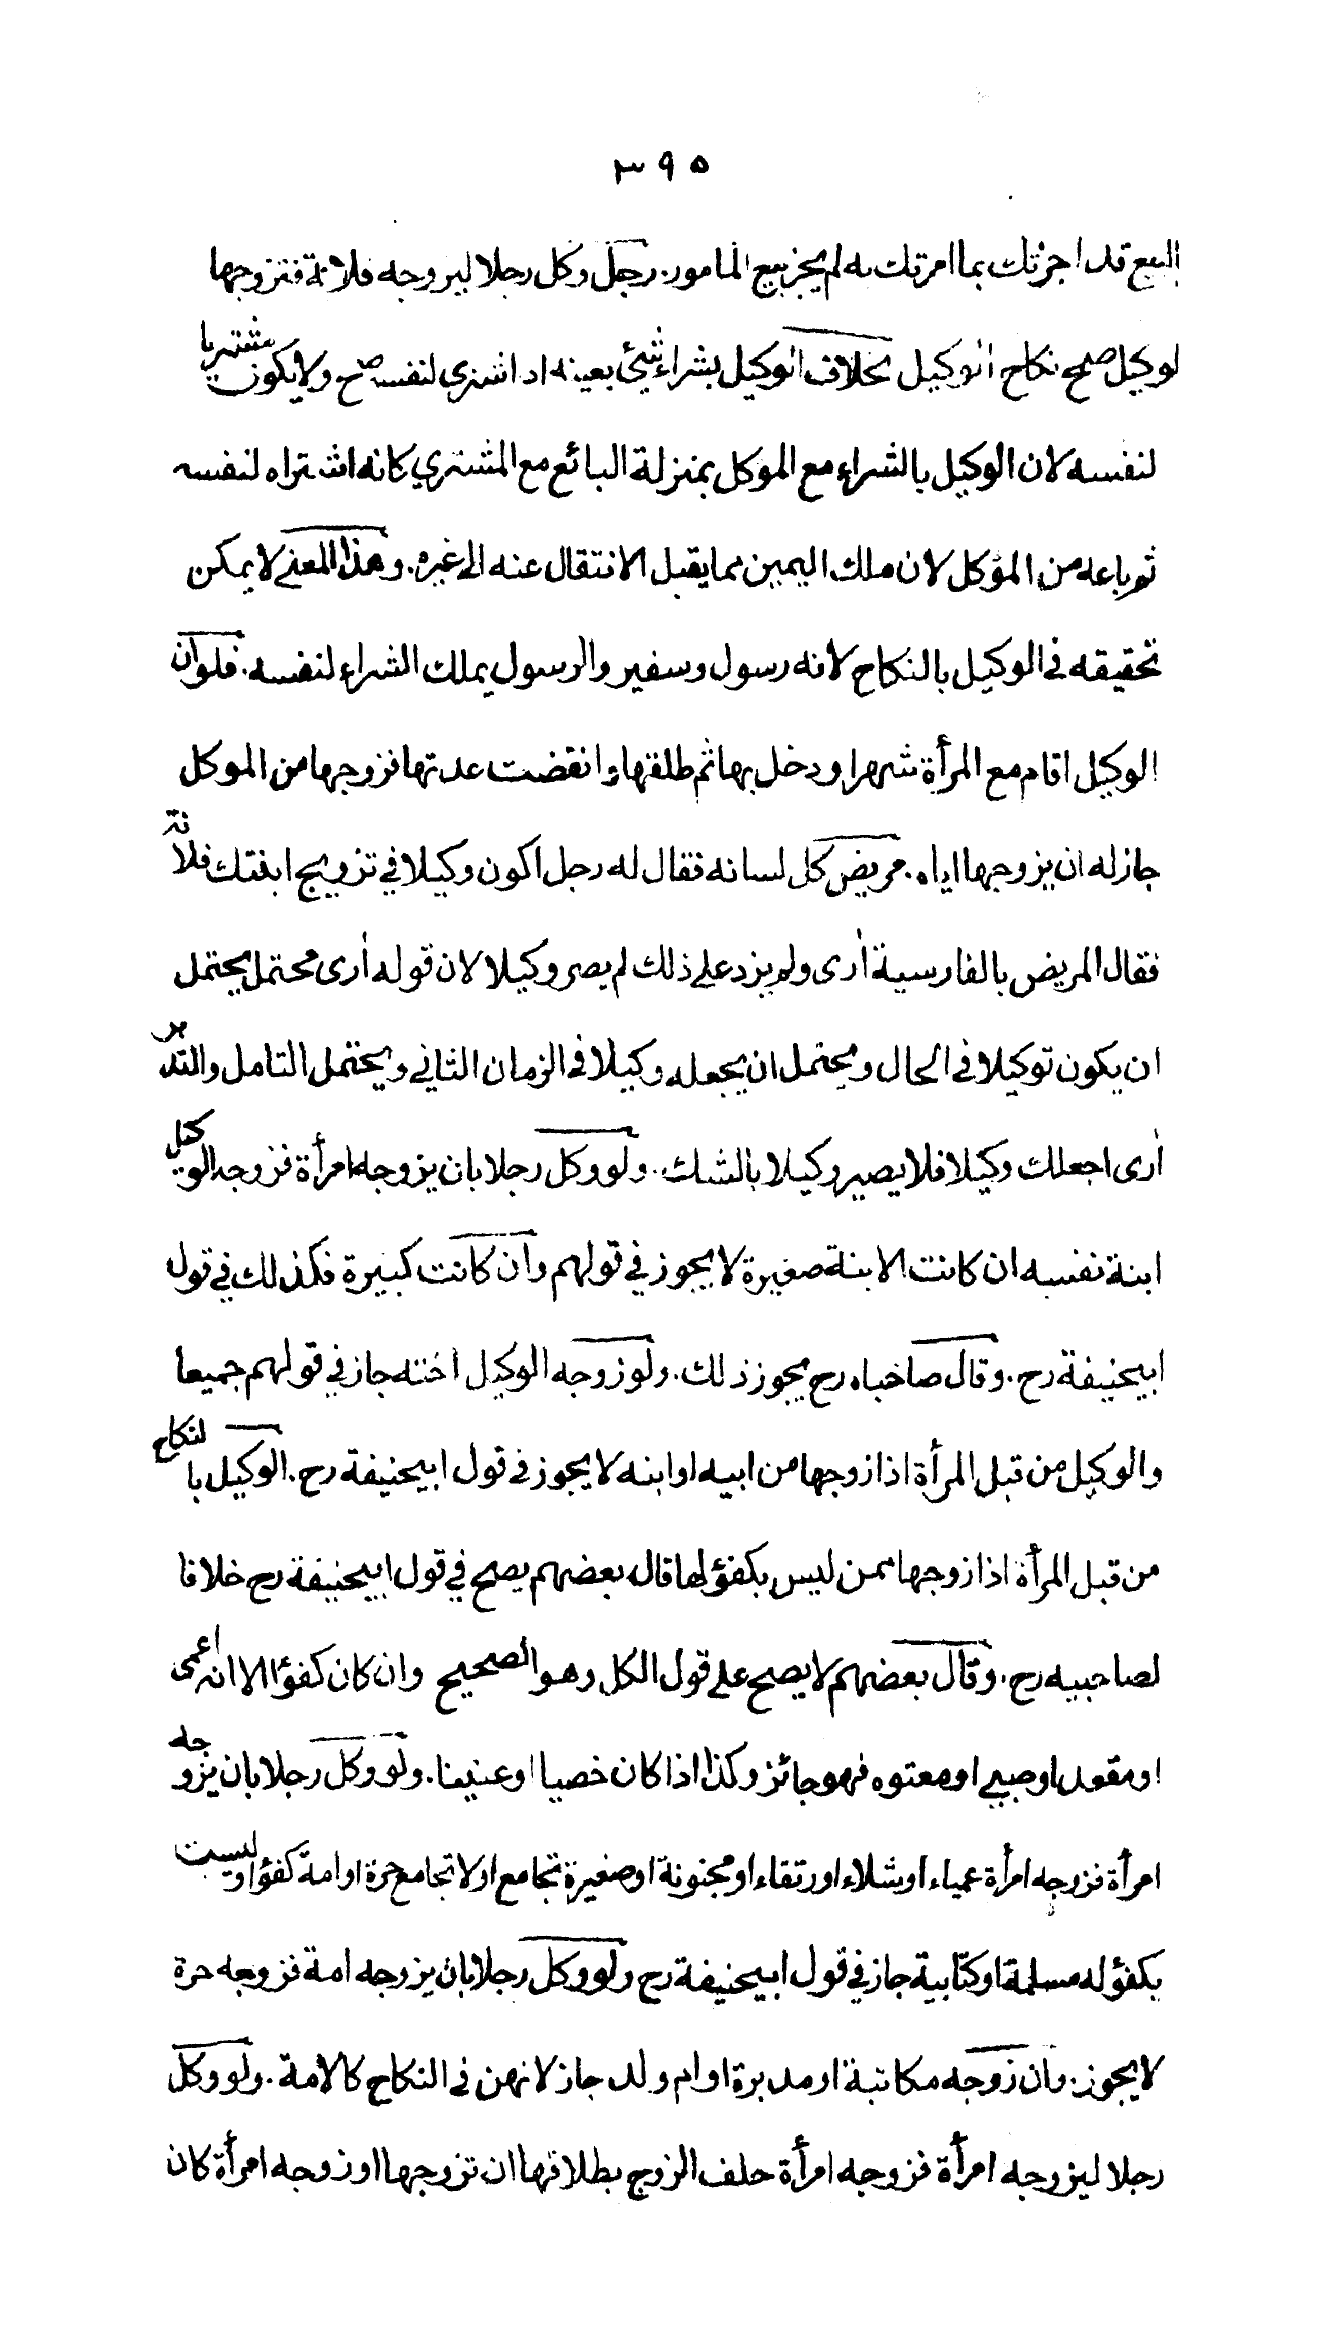 ٣٩٥
البيع قد اجزتك بما امرتك به لم يجز بيع المامور. رجل وكل رجلا ليزوجه فلانة فتزوجها
لوكيل صح نكاح الوكيل بخلاف الوكيل بشراء شيئ بعينه اذا اشترى لنفسه صح. ولا يكون مشتريا
لنفسه لان الوكيل بالشراء مع الموكل بمنزلة البائع مع المشتري كانه اشتراه لنفسه
ثم باعه من الموكل لان ملك اليمين مما يقبل الانتقال عنه الى غيره. وهذا المعنى لا يمكن
تحقيقه في الوكيل بالنكاح لانه رسول وسفير والرسول يملك الشراء لنفسه. فلو ان
الوكيل اقام مع المرأة شهرا ودخل بها ثم طلقها وانقضت عدتها فزوجها من الموكل
جاز له ان يزوجها اياه. مريض كل لسانه فقال له رجل اكون وكيلا في تزويج ابنتك فلانة
فقال المريض بالفارسية أرى ولم يزد على ذلك لم يصر وكيلا لان قوله أرى محتمل يحتمل
ان يكون توكيلا في الحال ويحتمل ان يجعله وكيلا في الزمان الثاني ويحتمل التامل والتدبر
أرى اجعلك وكيلا فلا يصير وكيلا بالشك. ولو وكل رجلا بان يزوجه امرأة فزوجه الوكيل
ابنة نفسه ان كانت الابنة صغيرة لا يجوز في قولهم وان كانت كبيرة فكذلك في قول
ابيحنيفة رح. وقال صاحباه رح يجوز ذلك. ولو زوجه الوكيل اخته جاز في قولهم جميعا
والوكيل من قبل المرأة اذا زوجها من ابيه او ابنه لا يجوز في قول ابيحنيفة رح. الوكيل بالنكاح
من قبل المرأة اذا زوجها ممن ليس بكفؤ لها قال بعضهم يصح في قول ابيحنيفة رح خلافا
لصاحبيه رح. وقال بعضهم لا يصح على قول الكل وهو الصحيح وان كان كفؤا الا انه اعمى
او مقعد او صبي او معتوه فهو جائز وكذا اذا كان خصيا او عنينا. ولو وكل رجلا بان يزوجه
امرأة فزوجه امرأة عمياء او شلاء او رتقاء او مجنونة او صغيرة تجامع او لا تجامع حرة او امة كفؤا او ليست
بكفؤ له مسلمة او كتابية جاز في قول ابيحنيفة رح ولو وكل رجلا بان يزوجه امة فزوجه حرة
لا يجوز. وان زوجه مكاتبة او مدبرة او ام ولد جاز لانهن في النكاح كالامة. ولو وكل
رجلا ليزوجه امرأة فزوجه امرأة حلف الزوج بطلاقها ان تزوجها او زوجه امرأة كان